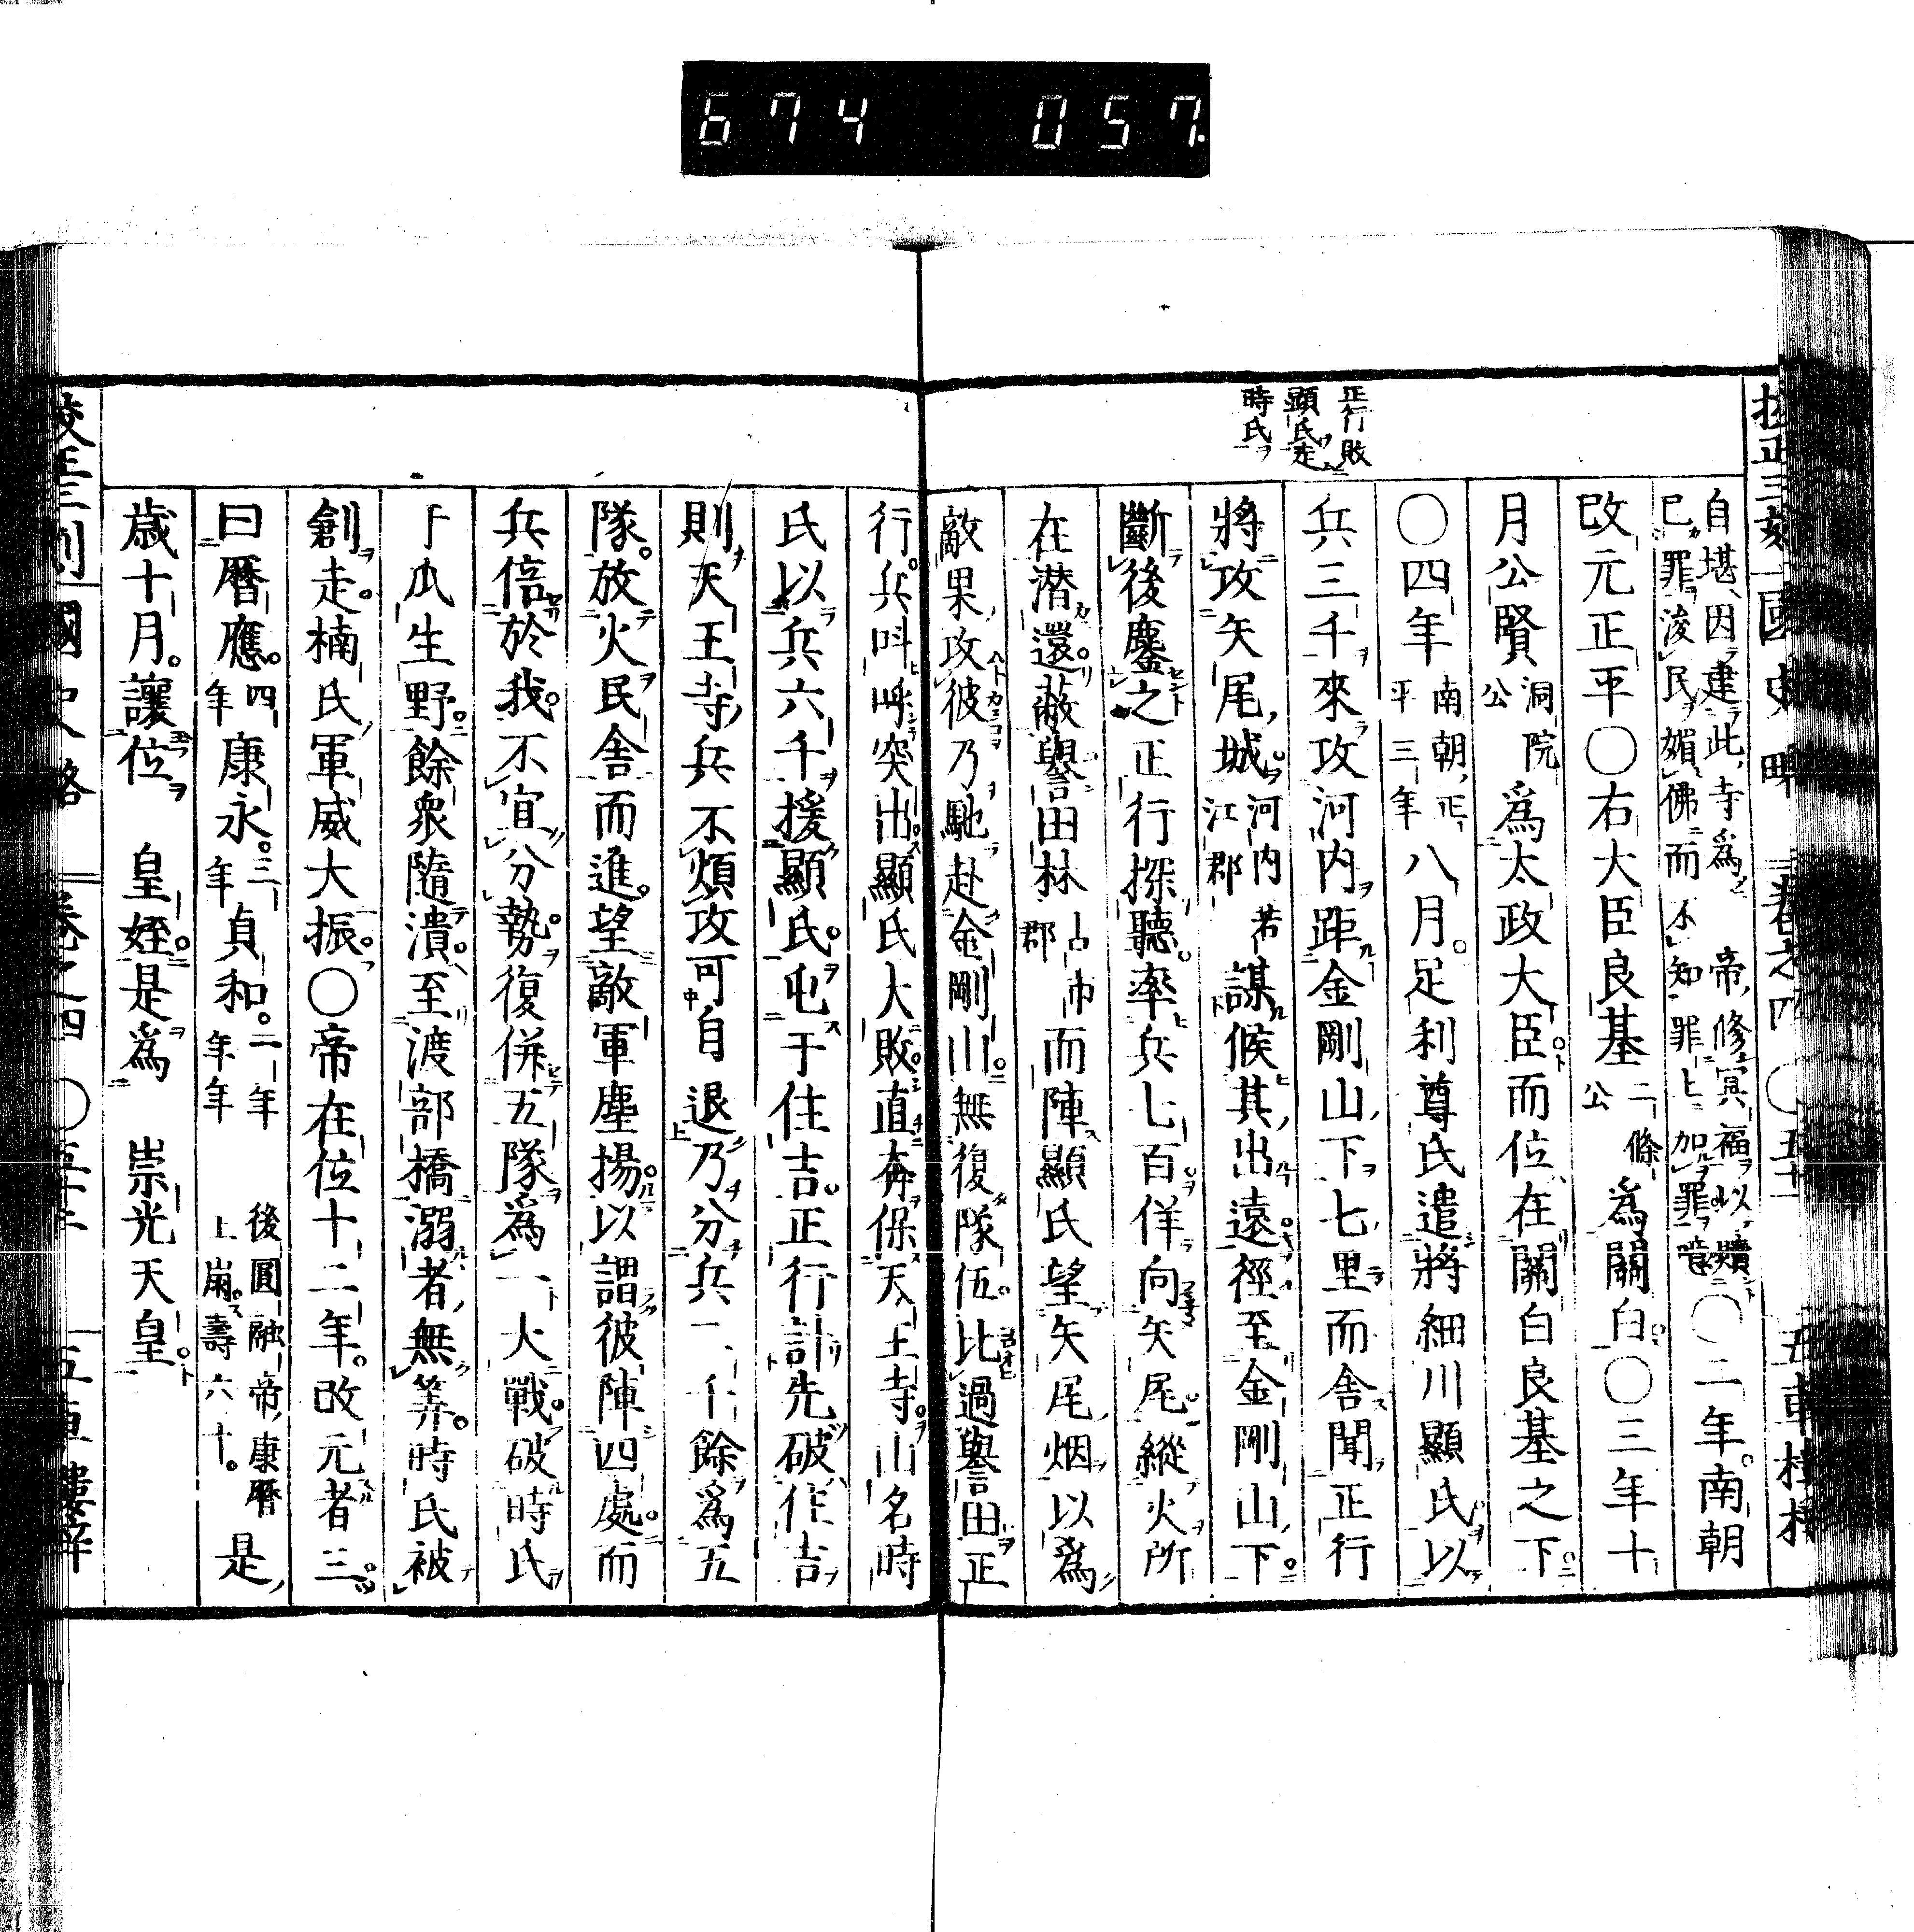 674 057
正行敗
顯氏走
時氏
自堪因建此寺爲 帝修冥福以贖
已罪浚民媚佛而不知罪上加罪噫
○二年南朝
改元正平○右大臣良基二條公爲關白○三年十
月公賢洞院公爲太政大臣而位在關白良基之下
○四年南朝正平三年八月足利尊氏遣將細川顯氏以
兵三千來攻河内距金剛山下七里而舍聞正行
將攻矢尾城河内若江郡謀候其出遠徑至金剛山下
斷後鏖之正行探聽率兵七百佯向矢尾縱火所
在潜還蔽譽田林古市郡而陣顯氏望矢尾烟以爲
敵果攻彼乃馳赴金剛山無復隊伍比過譽田正
行兵叫呼突出顯氏大敗直奔保天王寺山名時
氏以兵六千援顯氏屯于住吉正行計先破住吉
則天王寺兵不煩攻可自退乃分兵二千餘爲五
隊放火民舍而進望敵軍塵揚以謂彼陣四處而
兵倍於我不宜分勢復併五隊爲一大戰破時氏
于瓜生野餘衆隨潰至渡部橋溺者無筭時氏被
創走楠氏軍威大振○帝在位十二年改元者三
曰曆應四年康永三年貞和二年年後圓融帝康曆上崩壽六十是
歳十月讓位 皇姪是爲 崇光天皇
國史略 卷之四